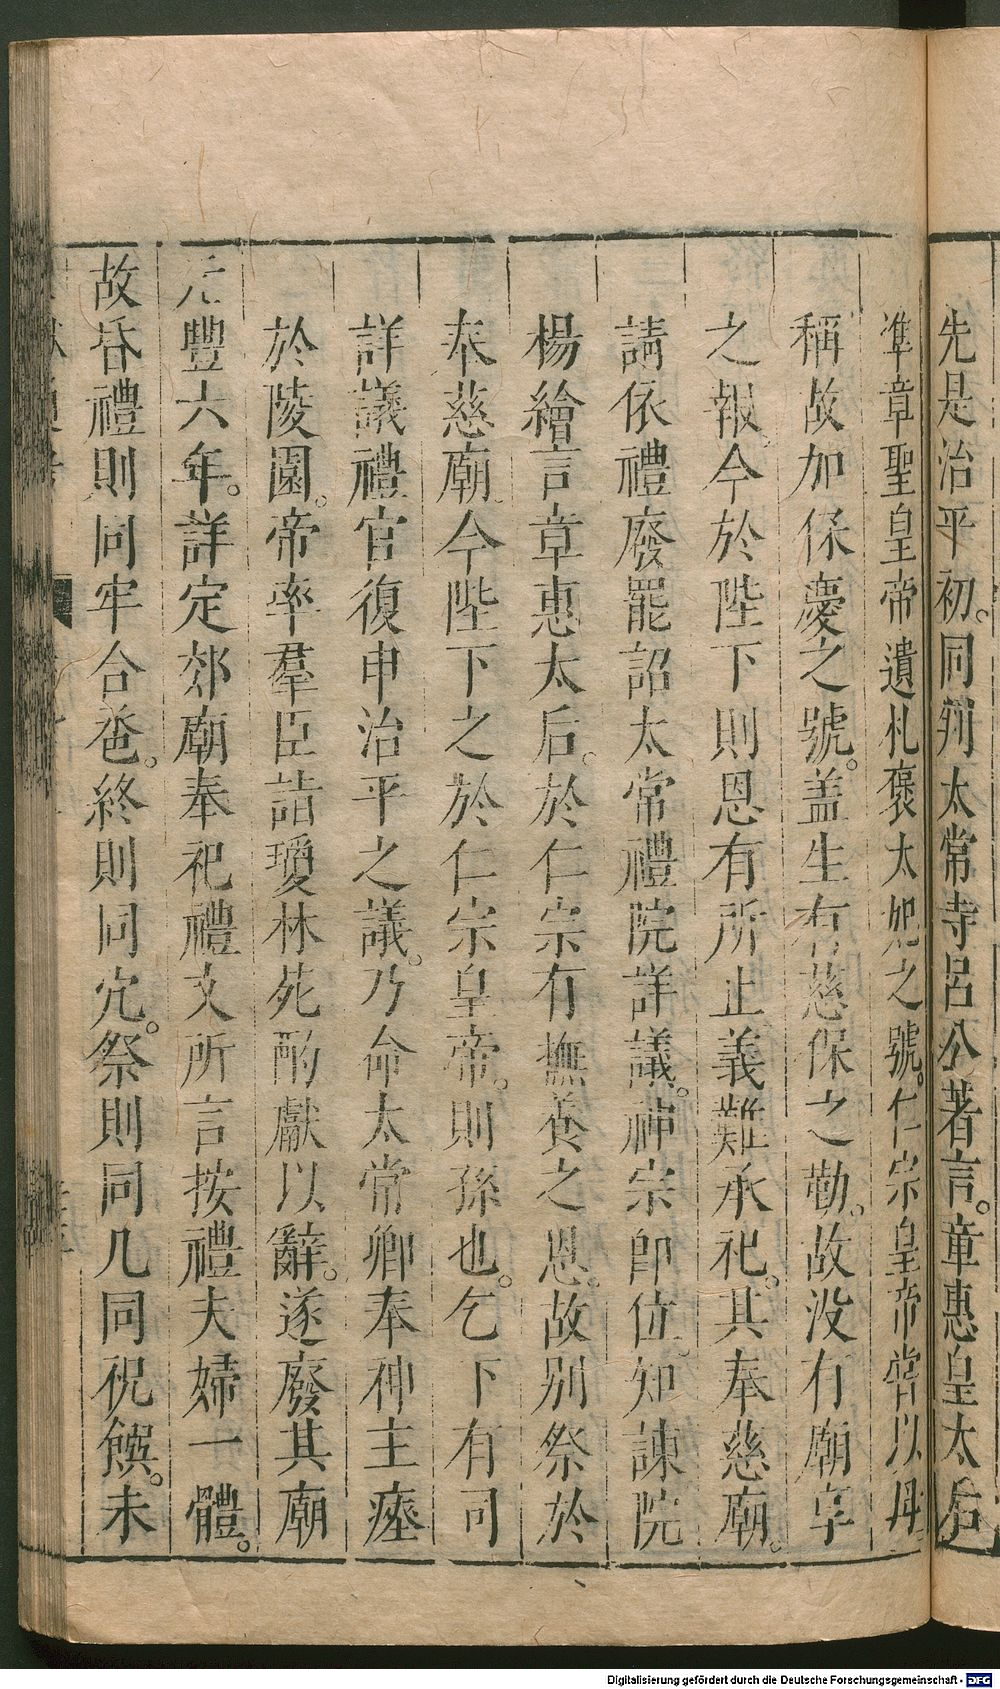 先是治平初。同判太常寺呂公著言。章惠皇太后
準章聖皇帝遺札褒太妃之號。仁宗皇帝嘗以母
稱故加保慶之號。盖生有慈保之勤。故没有廟享
之報。今於陛下則恩有所止義難承祀。其奉慈廟。
請依禮廢罷詔太常禮院詳議。神宗卽位。知諫院
楊繪言章惠太后。於仁宗有撫養之恩。故别祭於
奉慈廟今陛下之於仁宗皇帝。則孫也。乞下有司
詳議禮官復申治平之議。乃命太常卿奉神主瘞
於陵園。帝率羣臣詣瓊林苑酌獻以辭。遂廢其廟
元豐六年。詳定郊廟奉祀禮文所言按禮夫婦一體。
故昏禮則同牢合卺。終則同穴。祭則同几同祝饌。未
Digitalisierung gefördert durch die Deutsche Forschungsgemeinschaft - DFG